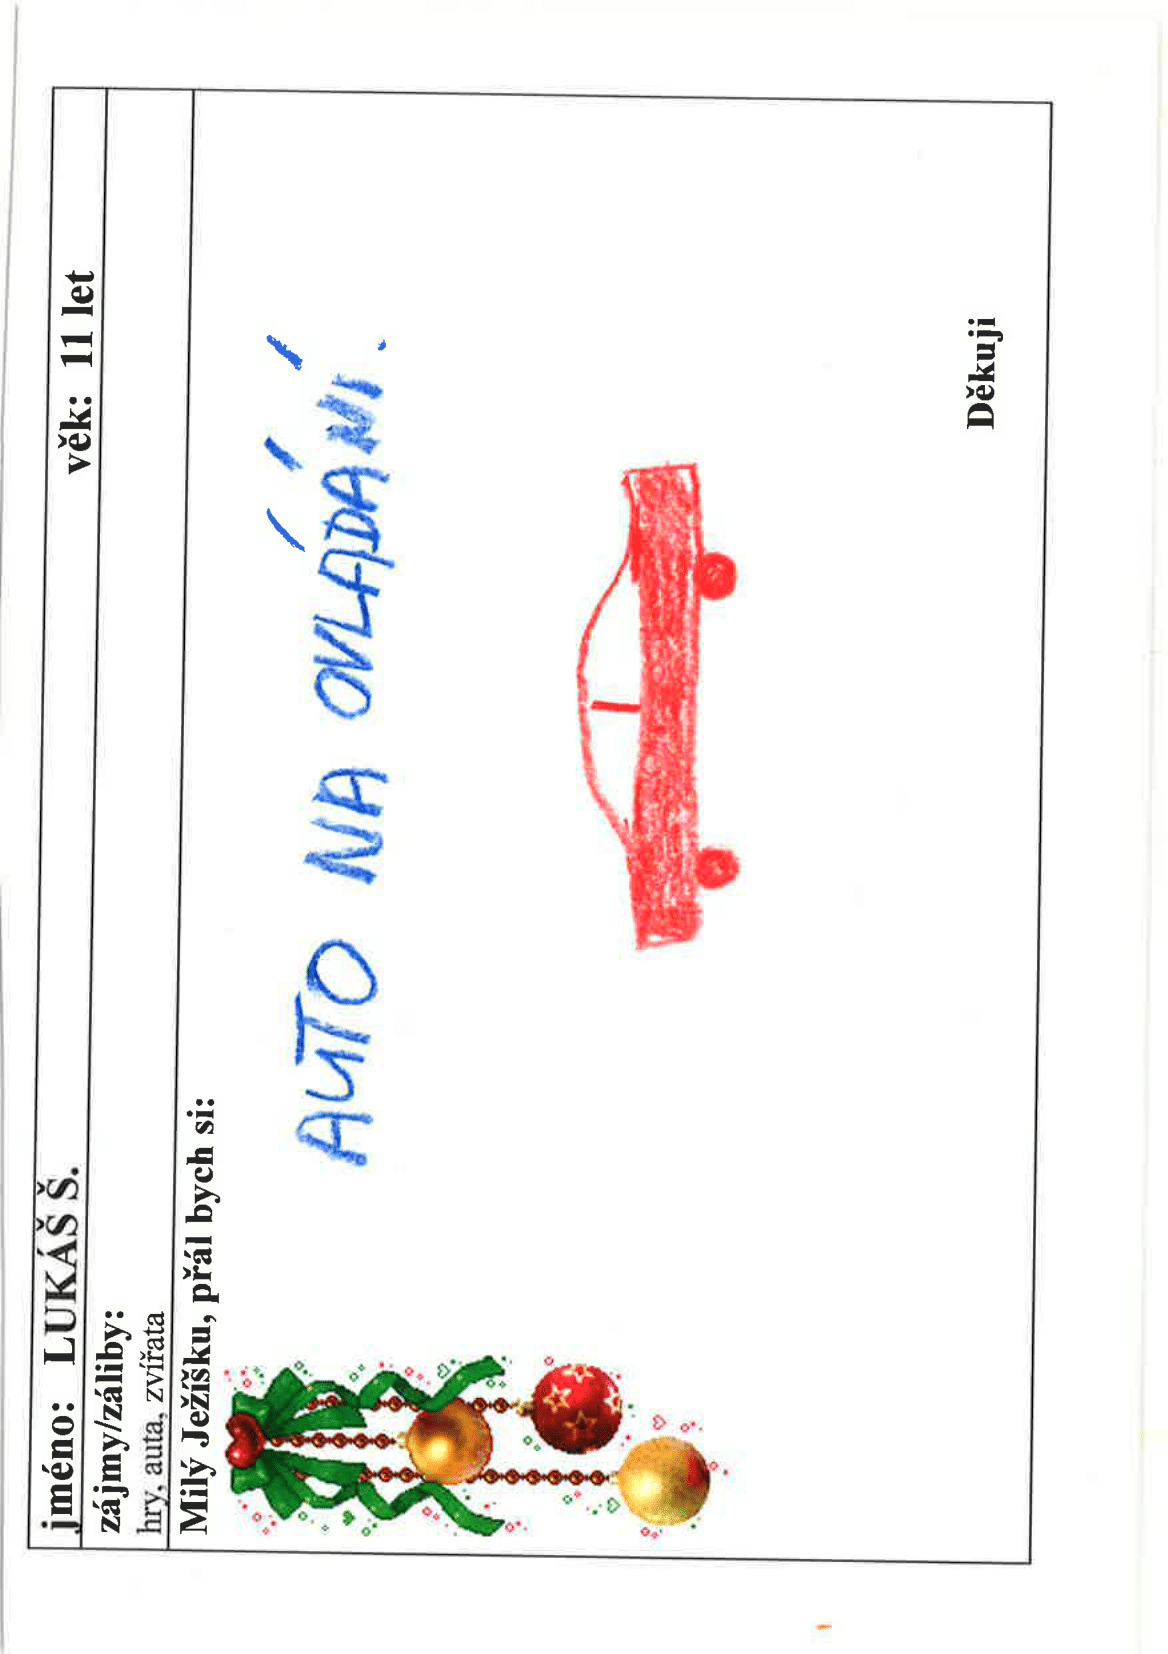 jméno: LUKÁŠ Š. věk: 11 let
zájmy/záliby:
hry, auta, zvířata
Milý Ježíšku, přál bych si:
AUTO NA OVLÁDÁNÍ.
Děkuji